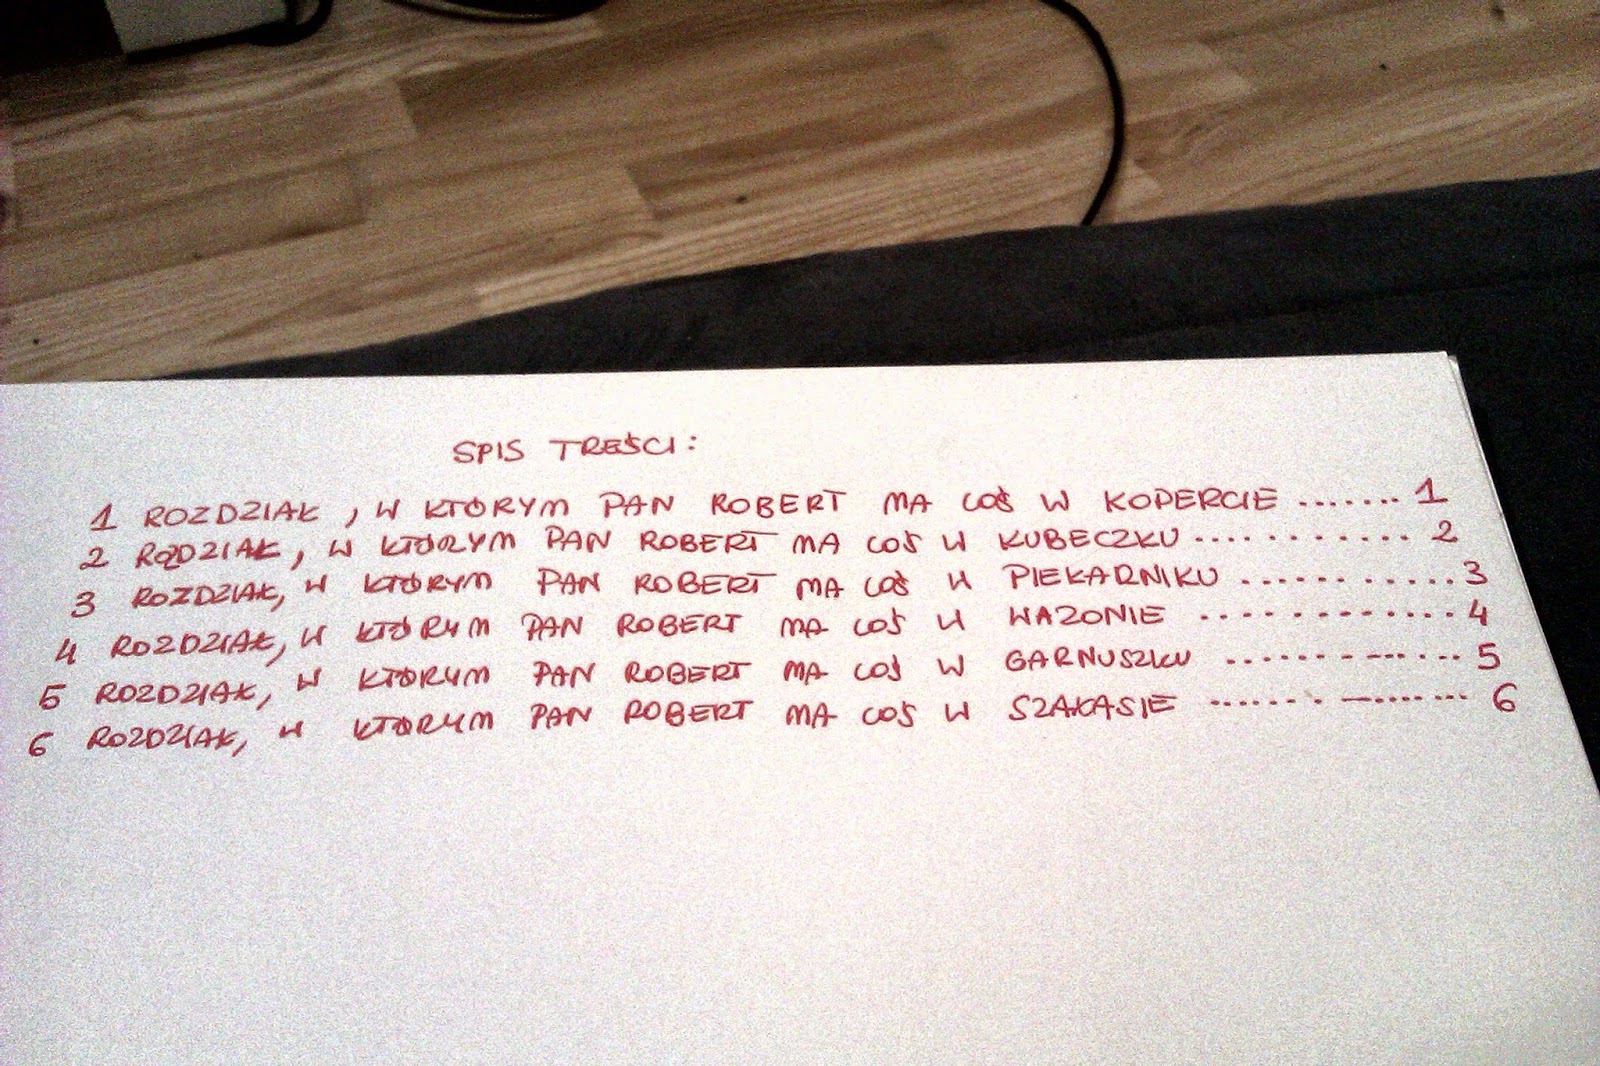 SPIS TREŚCI:
1 ROZDZIAŁ, W KTÓRYM PAN ROBERT MA COŚ W KOPERCIE ....... 1
2 ROZDZIAŁ, W KTÓRYM PAN ROBERT MA COŚ W KUBECZKU ............ 2
3 ROZDZIAŁ, W KTÓRYM PAN ROBERT MA COŚ W PIEKARNIKU ............ 3
4 ROZDZIAŁ, W KTÓRYM PAN ROBERT MA COŚ W WAZONIE .............. 4
5 ROZDZIAŁ, W KTÓRYM PAN ROBERT MA COŚ W GARNUSZKU .............. 5
6 ROZDZIAŁ, W KTÓRYM PAN ROBERT MA COŚ W SZAŁASIE ............... 6